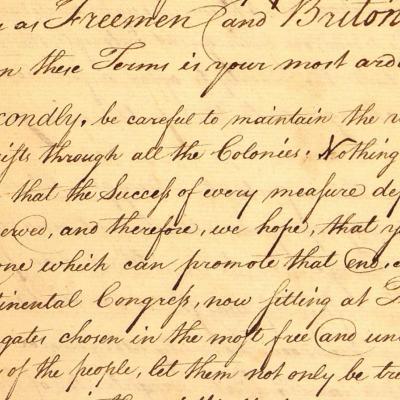 as Freemen and Briton
these Terms is your most ard
condly, be careful to maintain the
ists through all the Colonies: Nothing
that the Succeſs of every measure de
erved, and therefore, we hope, that y
one which can promote that end,
tinental Congreſs, now ſitting at
gates chosen in the moſt free and un
of the people, let them not only be tre